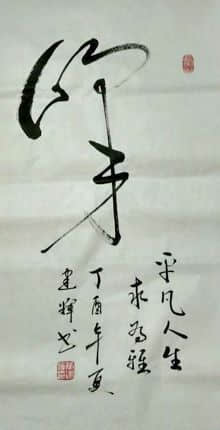 平凡人生
求为雅
丁酉年夏
建辉书